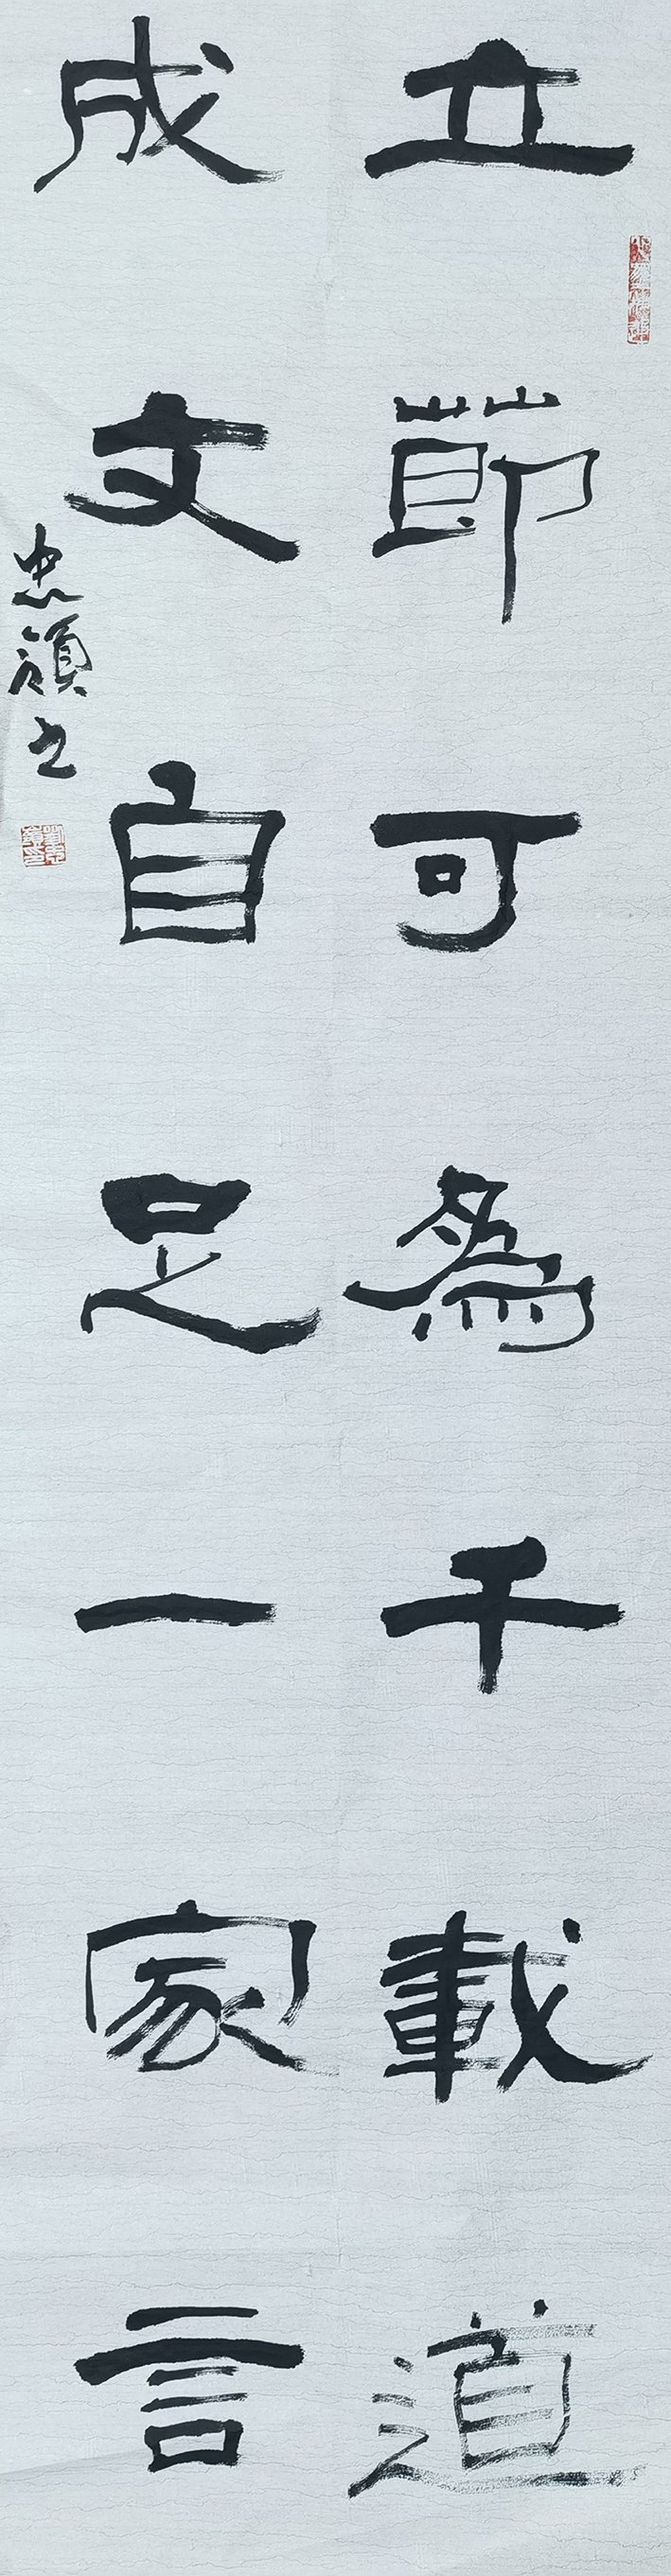 立節可為千載道
成文自足一家言
忠領書